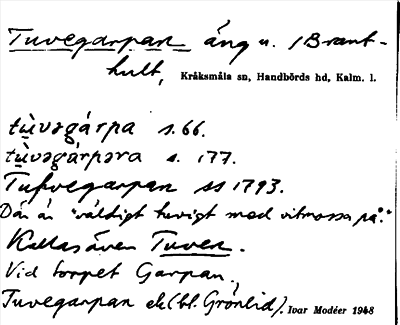 Tuvegarpan äng u. /Brant-
hult, Kråksmåla sn, Handbörds hd, Kalm. l.
tùvəgárpa s. 66.
tùvəgárpəra s. 177.
Tufvegarpan ss 1793.
Där är "väldigt tuvigt med vitmossa på."
Kallas även Tuven.
Vid torpet Garpan,
Tuvegarpan ek (bl. Grönlid). Ivar Modéer 1948